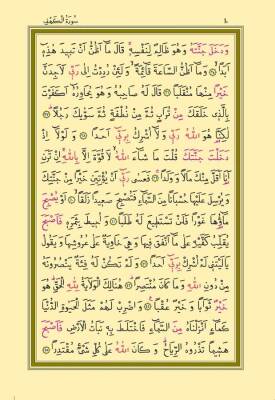 سُورَةُ الْكَهْفِ
وَدَخَلَ جَنَّتَهُ وَهُوَ ظَالِمٌ لِنَفْسِهِ قَالَ مَا أَظُنُّ أَنْ تَبِيدَ هٰذِهِ
أَبَدًا وَمَا أَظُنُّ السَّاعَةَ قَائِمَةً وَلَئِنْ رُدِدْتُ إِلٰى رَبِّي لَأَجِدَنَّ
خَيْرًا مِنْهَا مُنْقَلَبًا قَالَ لَهُ صَاحِبُهُ وَهُوَ يُحَاوِرُهُ أَكَفَرْتَ
بِالَّذِي خَلَقَكَ مِنْ تُرَابٍ ثُمَّ مِنْ نُطْفَةٍ ثُمَّ سَوَّاكَ رَجُلًا
لٰكِنَّا هُوَ اللّٰهُ رَبِّي وَلَا أُشْرِكُ بِرَبِّي أَحَدًا وَلَوْلَا إِذْ
دَخَلْتَ جَنَّتَكَ قُلْتَ مَا شَاءَ اللّٰهُ لَا قُوَّةَ إِلَّا بِاللّٰهِ إِنْ تَرَنِ
أَنَا أَقَلَّ مِنْكَ مَالًا وَوَلَدًا فَعَسٰى رَبِّي أَنْ يُؤْتِيَنِ خَيْرًا مِنْ جَنَّتِكَ
وَيُرْسِلَ عَلَيْهَا حُسْبَانًا مِنَ السَّمَاءِ فَتُصْبِحَ صَعِيدًا زَلَقًا أَوْ يُصْبِحَ
مَاؤُهَا غَوْرًا فَلَنْ تَسْتَطِيعَ لَهُ طَلَبًا وَأُحِيطَ بِثَمَرِهِ فَأَصْبَحَ
يُقَلِّبُ كَفَّيْهِ عَلٰى مَا أَنْفَقَ فِيهَا وَهِيَ خَاوِيَةٌ عَلٰى عُرُوشِهَا وَيَقُولُ
يَا لَيْتَنِي لَمْ أُشْرِكْ بِرَبِّي أَحَدًا وَلَمْ تَكُنْ لَهُ فِئَةٌ يَنْصُرُونَهُ
مِنْ دُونِ اللّٰهِ وَمَا كَانَ مُنْتَصِرًا هُنَالِكَ الْوَلَايَةُ لِلّٰهِ الْحَقِّ هُوَ
خَيْرٌ ثَوَابًا وَخَيْرٌ عُقْبًا وَاضْرِبْ لَهُمْ مَثَلَ الْحَيٰوةِ الدُّنْيَا
كَمَاءٍ أَنْزَلْنَاهُ مِنَ السَّمَاءِ فَاخْتَلَطَ بِهِ نَبَاتُ الْأَرْضِ فَأَصْبَحَ
هَشِيمًا تَذْرُوهُ الرِّيَاحُ وَكَانَ اللّٰهُ عَلٰى كُلِّ شَيْءٍ مُقْتَدِرًا